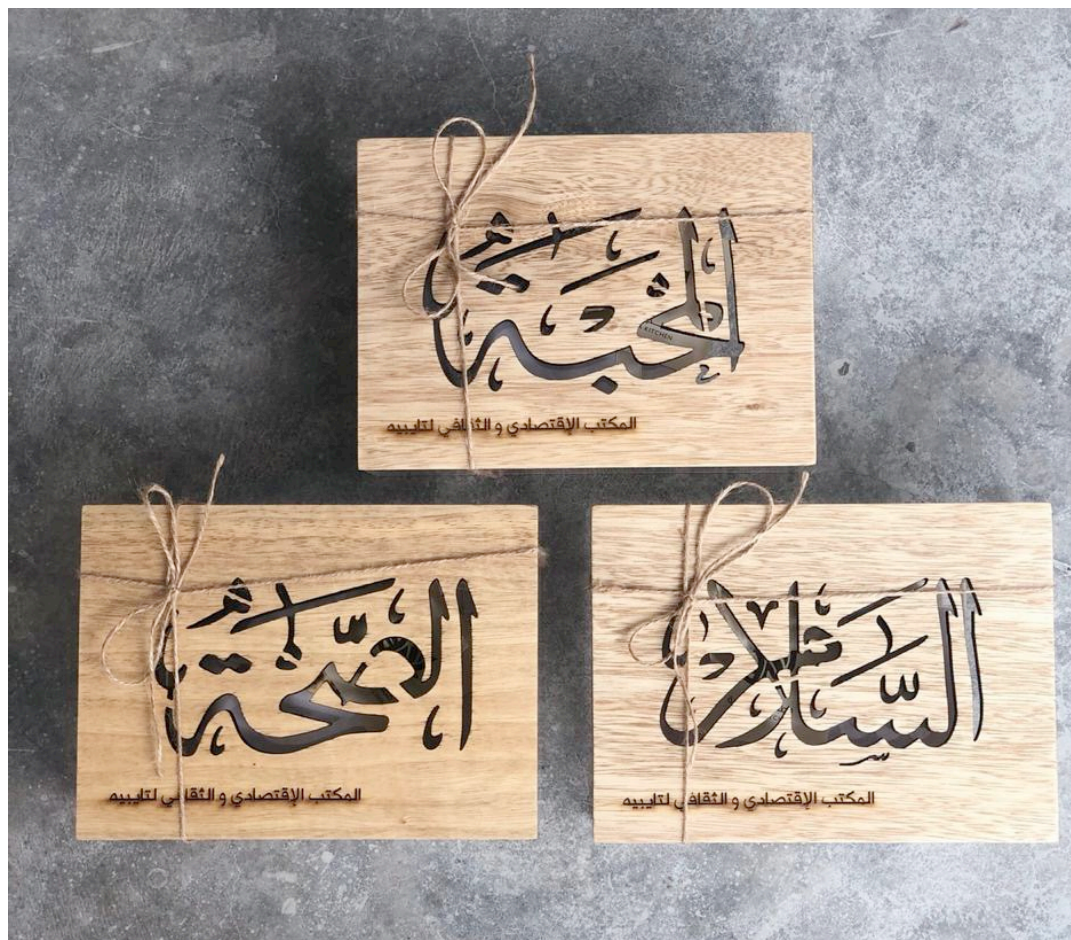 المحبة
KITCHEN
المكتب الإقتصادي و الثقافي لتايبيه
الصحة
المكتب الإقتصادي و الثقافي لتايبيه
السلام
المكتب الإقتصادي و الثقافي لتايبيه